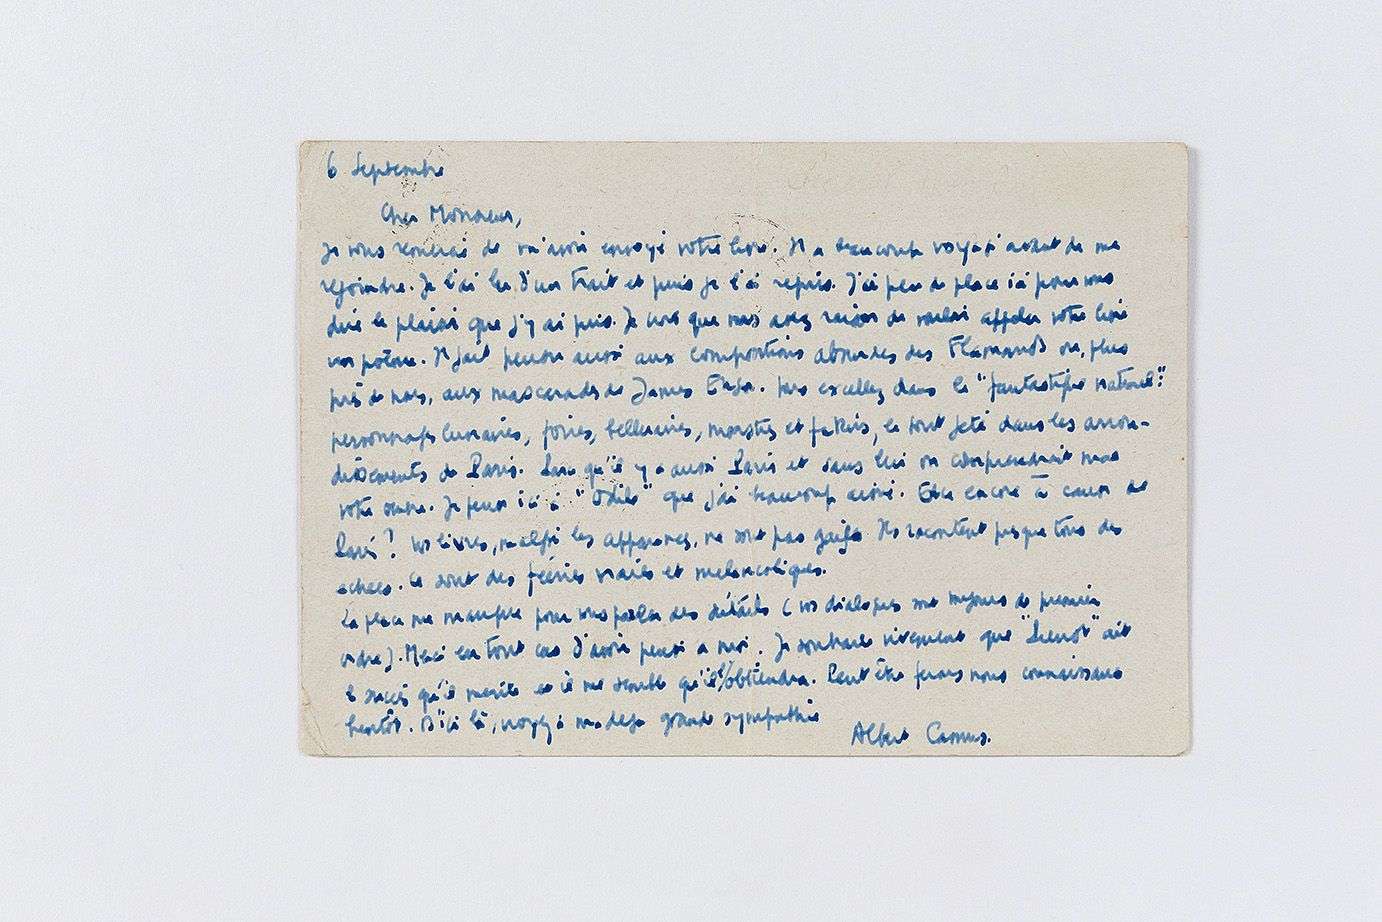 6 Septembre
Cher Monsieur,
Je vous remercie de m'avoir envoyé votre livre. Il a beaucoup voyagé avant de me
rejoindre. Je l'ai lu d'un trait et puis je l'ai repris. J'ai peu de place ici pour vous
dire le plaisir que j'y ai pris. Je crois que vous avez raison de vouloir appeler votre livre
un poème. Il fait penser aussi aux compositions absurdes des Flamands ou, plus
près de nous, aux mascarades de James Ensor. Vous excellez dans le "fantastique naturel":
personnages lunaires, foires, belluaires, monstres et fakirs, le tout jeté dans les arron-
dissements de Paris. Parce qu'il y a aussi Paris et sans lui on comprendrait mal
votre œuvre. Je pense ici à "Odile" que j'ai beaucoup aimé. Etait encore à cause de
Paris? Vos livres, malgré les apparences, ne sont pas gais. Ils racontent presque tous des
échecs. Ce sont des féeries vraies et mélancoliques.
La place me manque pour vous parler des détails (vos dialogues sont toujours de premier
ordre). Merci en tout cas d'avoir pensé à moi. Je souhaite vivement que "Pierrot" ait
le succès qu'il mérite et il me semble qu'il l'obtiendra. Peut être ferons nous connaissance
bientôt. D'ici là, croyez à ma déjà grande sympathie
Albert Camus.